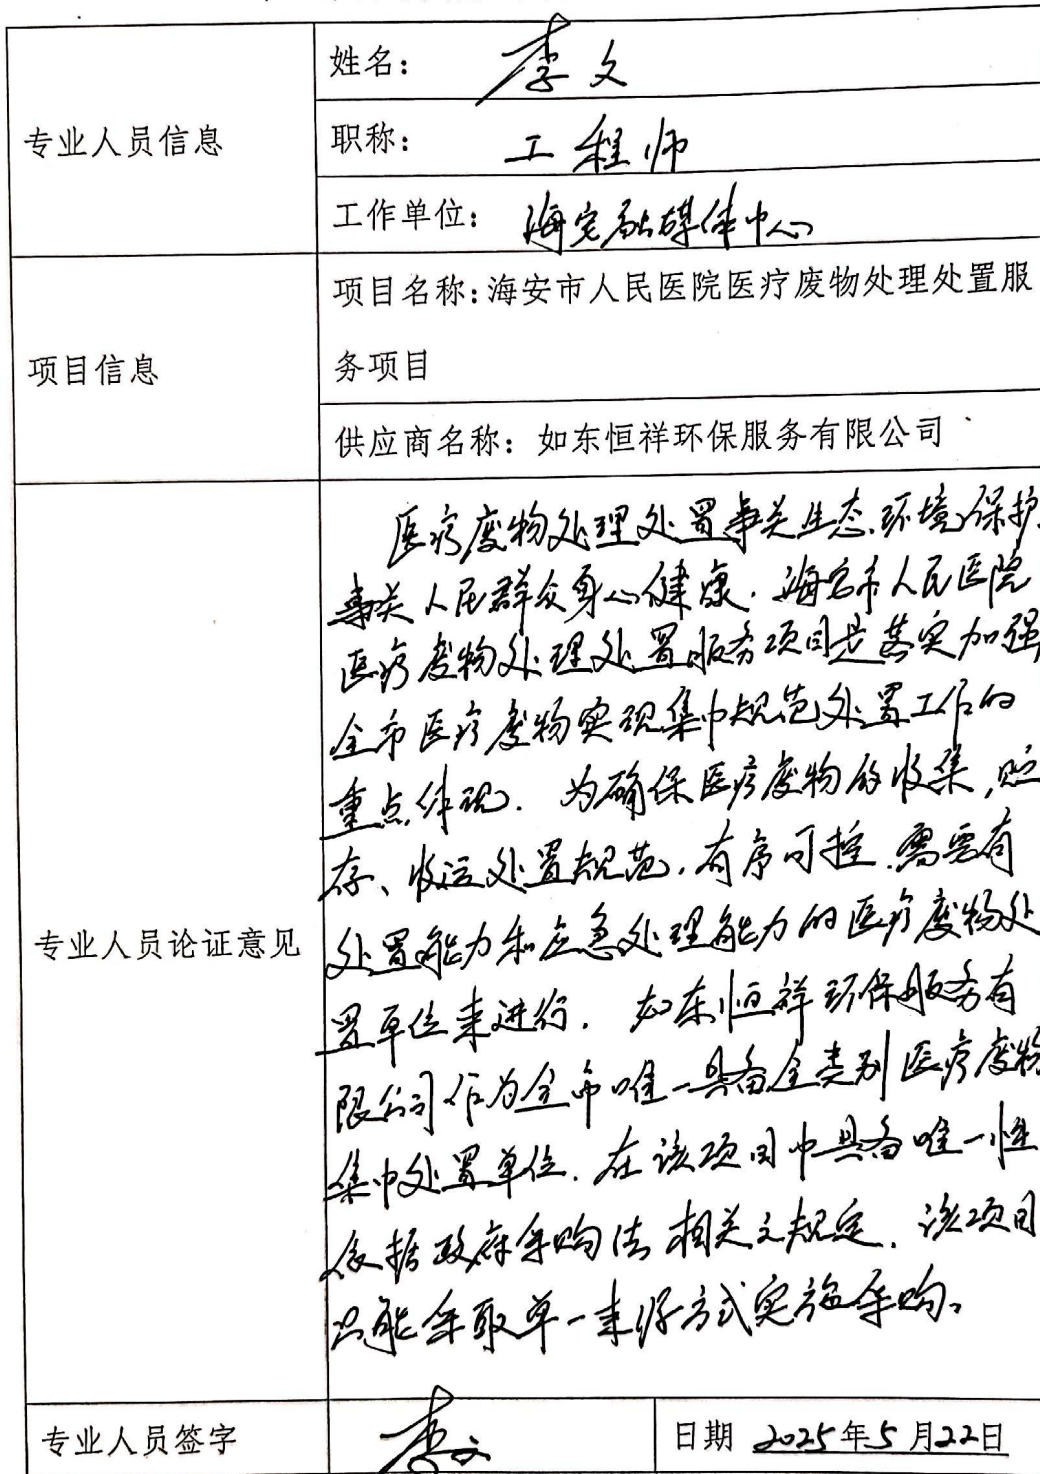 专业人员信息
姓名： 李文
职称： 工程师
工作单位： 海安融媒体中心
项目信息
项目名称：海安市人民医院医疗废物处理处置服
务项目
供应商名称：如东恒祥环保服务有限公司
专业人员论证意见
医疗废物处理处置事关生态环境保护
事关人民群众身心健康. 海安市人民医院
医疗废物处理处置服务项目是落实加强
全市医疗废物实现集中规范处置工作的
重点体现. 为确保医疗废物的收集,贮
存、收运处置规范,有序可控.需要有
处置能力和应急处理能力的医疗废物处
置单位来进行. 如东恒祥环保服务有
限公司作为全市唯一具备全类别医疗废物
集中处置单位.在该项目中具备唯一性
依据政府采购法相关之规定.该项目
只能采取单一来源方式实施采购。
专业人员签字
李文
日期 2025年5月22日